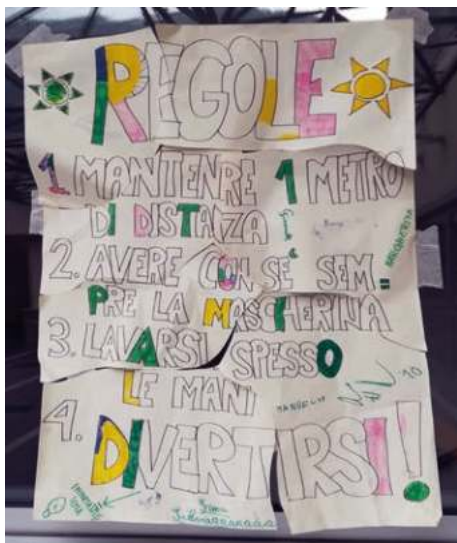 REGOLE
1. MANTENRE 1 METRO
DI DISTANZA
2. AVERE CON SÉ SEM=
PRE LA MASCHERINA
3. LAVARSI SPESSO
LE MANI
4. DIVERTIRSI!
MARGHERITA